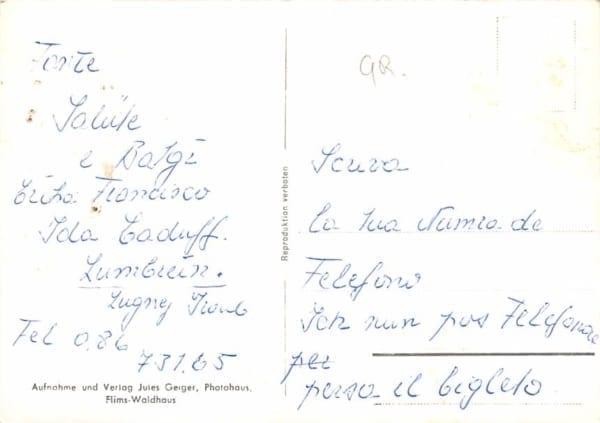 Tante
Salute
e Batgi
Erika Francisco
Ida Caduff.
Lumbrein.
Lugnez
Tel 086
73165
Aufnahme und Verlag Jules Geiger, Photohaus,
Flims-Waldhaus
Reproduktion verboten
GR.
Scusa
la tua Numra de
Telefono
Ich nun pos Telefonare
per
persa il bigleto